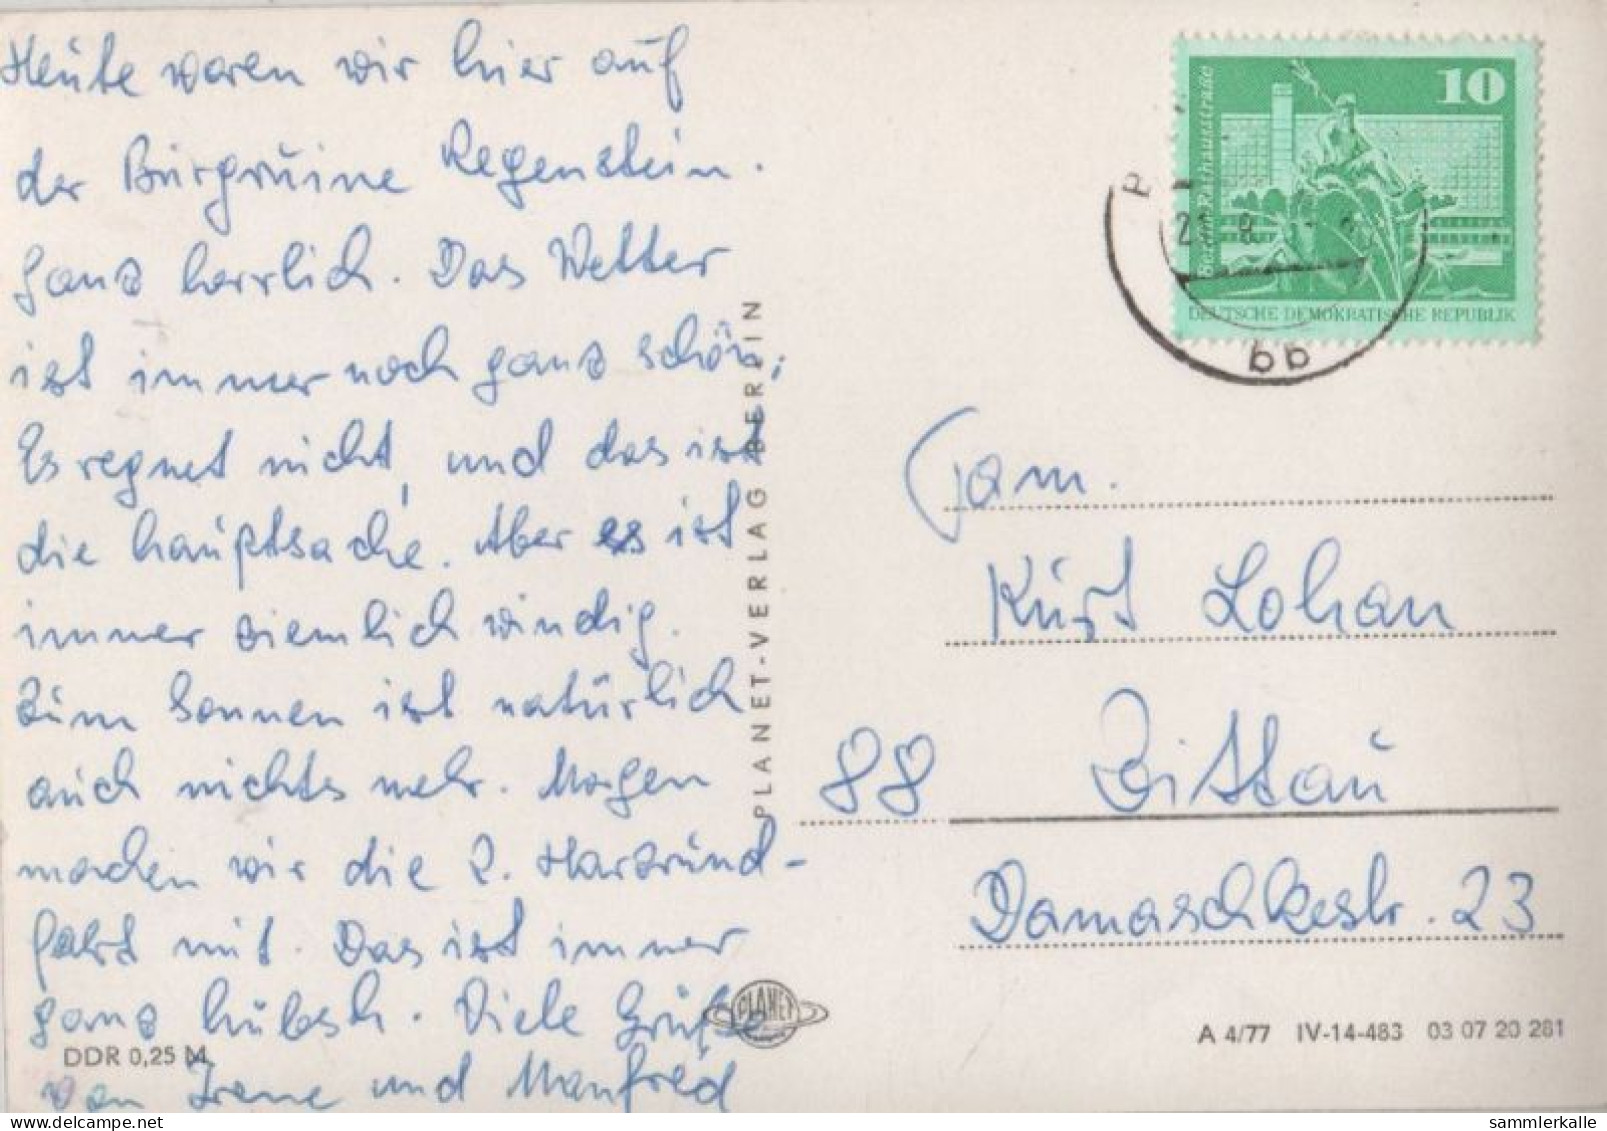 Heute waren wir hier auf
der Burgruine Regenstein.
Ganz herrlich. Das Wetter
ist immer noch ganz schön,
Es regnet nicht, und das ist
die hauptsache. Aber es ist
immer ziemlich windig.
Zum Sonnen ist natürlich
auch nichts mehr. Morgen
machen wir die 2. Harzrund-
fahrt mit. Das ist immer
ganz hübsch. Viele Grüße
von Irene und Manfred
DDR 0,25 M
PLANET-VERLAG BERLIN
PLANET
10
Berlin Rathausstraße
DEUTSCHE DEMOKRATISCHE REPUBLIK
bb
Fam.
Kurt Lohan
88 Zittau
Damaschkestr. 23
A 4/77 IV-14-483 03 07 20 281
sammlerkalle